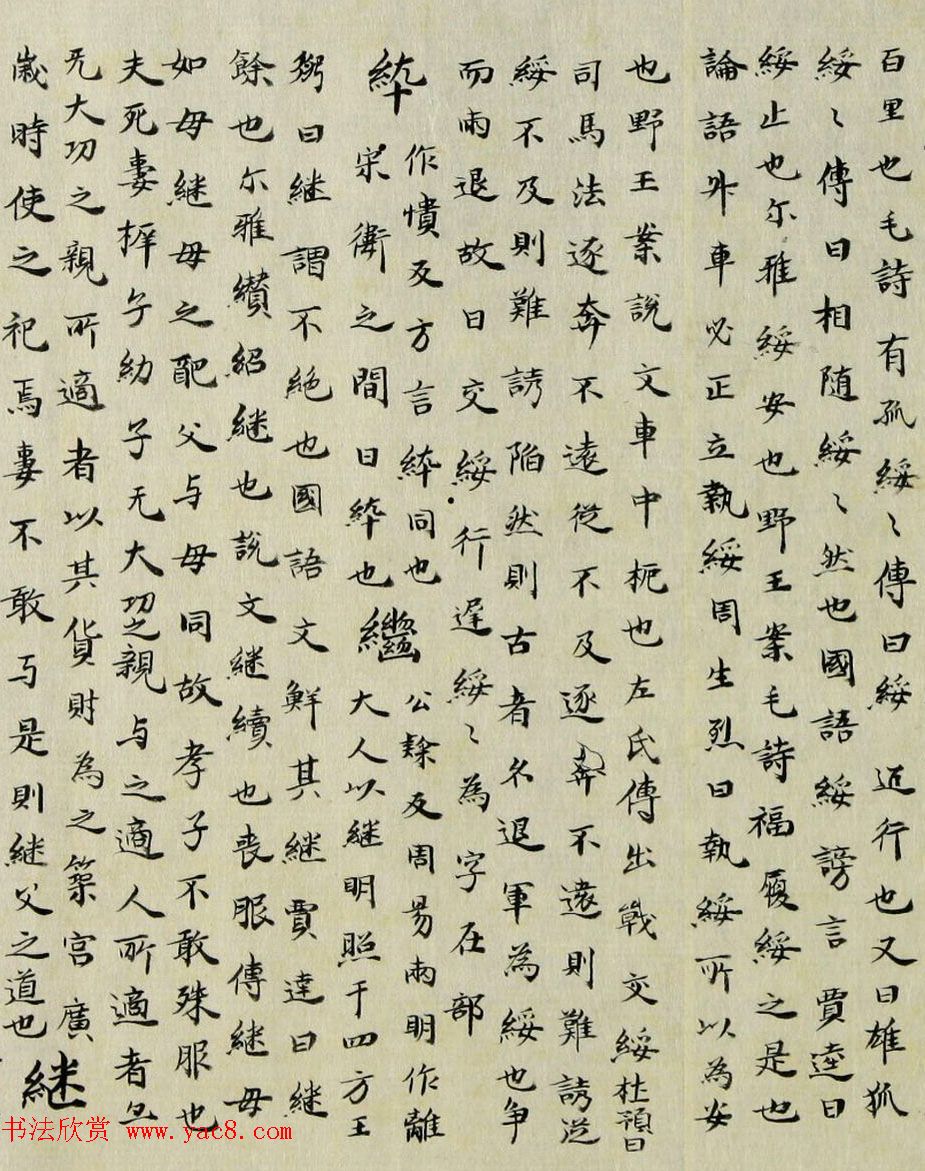 百里也毛詩有孤綏〻傳曰綏迊行也又曰雄狐
綏〻傳曰相随綏〻然也國語綏謗言賈逵曰
綏止也尓雅綏安也野王案毛詩福履綏之是也
論語升車必正立執綏周生烈曰執綏所以為安
也野王案説文車中枙也左氏傳出戰交綏杜預曰
司馬法逐奔不遠從不及逐奔不遠則難誘從
綏不及則難誘陷然則古者名退軍為綏也争
而兩退故曰交綏行遅綏〻為字在部
綷
作憒反方言綷同也
宋衛之間曰綷也
繼
公隸反周易兩明作離
大人以継明照于四方王
弼曰継謂不絶也國語文鮮其継賈逵曰継
餘也尓雅纉紹継也説文継續也喪服傳継母
如母継母之配父与母同故孝子不敢殊服也
夫死妻稺子幼子无大功之親与之適人所適者亦
无大功之親所適者以其貨財為之築宮廣
歳時使之祀焉妻不敢与是則継父之道也
継
书法欣赏 www.yac8.com